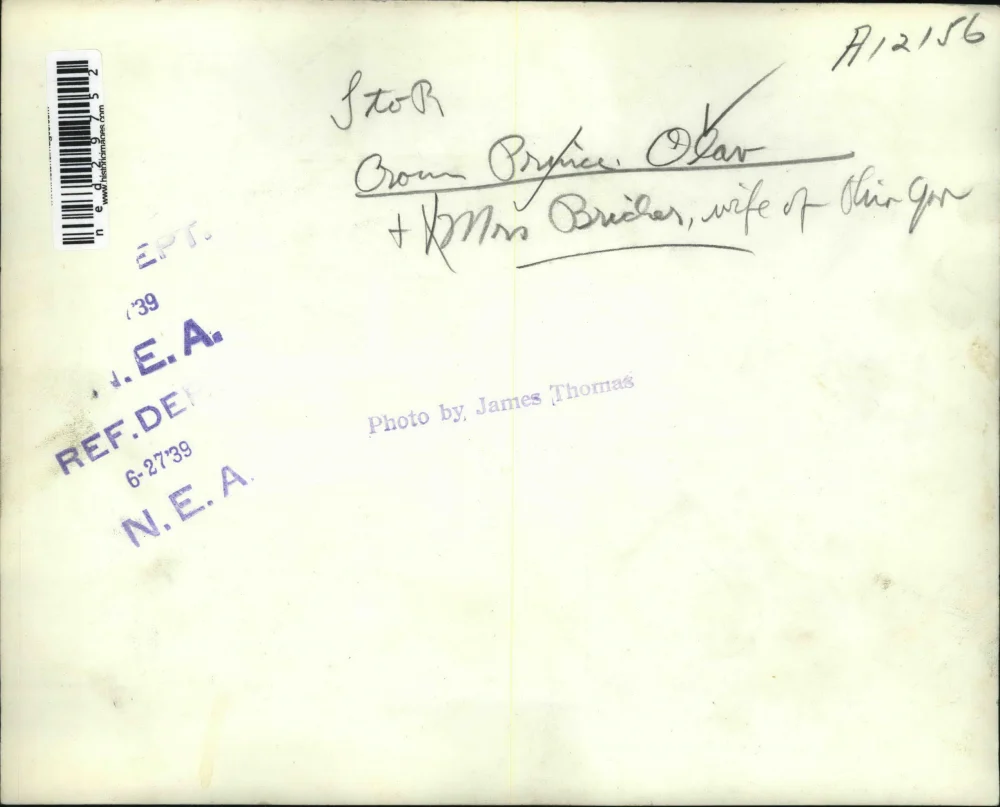 A12156
L to R
Crown Prince Olav
+ Mrs Bricker, wife of Ohio Gov
ned29752
www.historicimages.com
EPT.
'39
.E.A.
REF.DE
6-27'39
N.E.A.
Photo by James Thomas